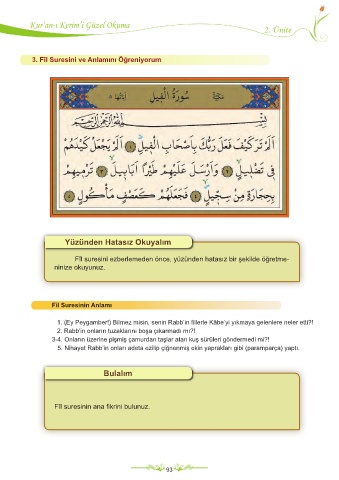 Kur'an-ı Kerim'i Güzel Okuma
2. Ünite
3. Fîl Suresini ve Anlamını Öğreniyorum
سُورَةُ الْفِيلِ
مَكِّيَّةٌ
بِسْمِ اللّٰهِ الرَّحْمٰنِ الرَّحِيمِ
اَلَمْ تَرَ كَيْفَ فَعَلَ رَبُّكَ بِاَصْحَابِ الْفِيلِۜ ﴿١﴾ اَلَمْ يَجْعَلْ كَيْدَهُمْ
فِي تَضْلِيلٍۙ ﴿٢﴾ وَاَرْسَلَ عَلَيْهِمْ طَيْرًا اَبَابِيلَۙ ﴿٣﴾ تَرْمِيهِمْ
بِحِجَارَةٍ مِنْ سِجِّيلٍۙ ﴿٤﴾ فَجَعَلَهُمْ كَعَصْفٍ مَأْكُولٍ ﴿٥﴾
Yüzünden Hatasız Okuyalım
Fîl suresini ezberlemeden önce, yüzünden hatasız bir şekilde öğretme-
ninize okuyunuz.
Fîl Suresinin Anlamı
1. (Ey Peygamber!) Bilmez misin, senin Rabb'in fillerle Kâbe'yi yıkmaya gelenlere neler etti?!
2. Rabb'in onların tuzaklarını boşa çıkarmadı mı?!
3-4. Onların üzerine pişmiş çamurdan taşlar atan kuş sürüleri göndermedi mi?!
5. Nihayet Rabb'in onları adeta ezilip çiğnenmiş ekin yaprakları gibi (paramparça) yaptı.
Bulalım
Fîl suresinin ana fikrini bulunuz.
93